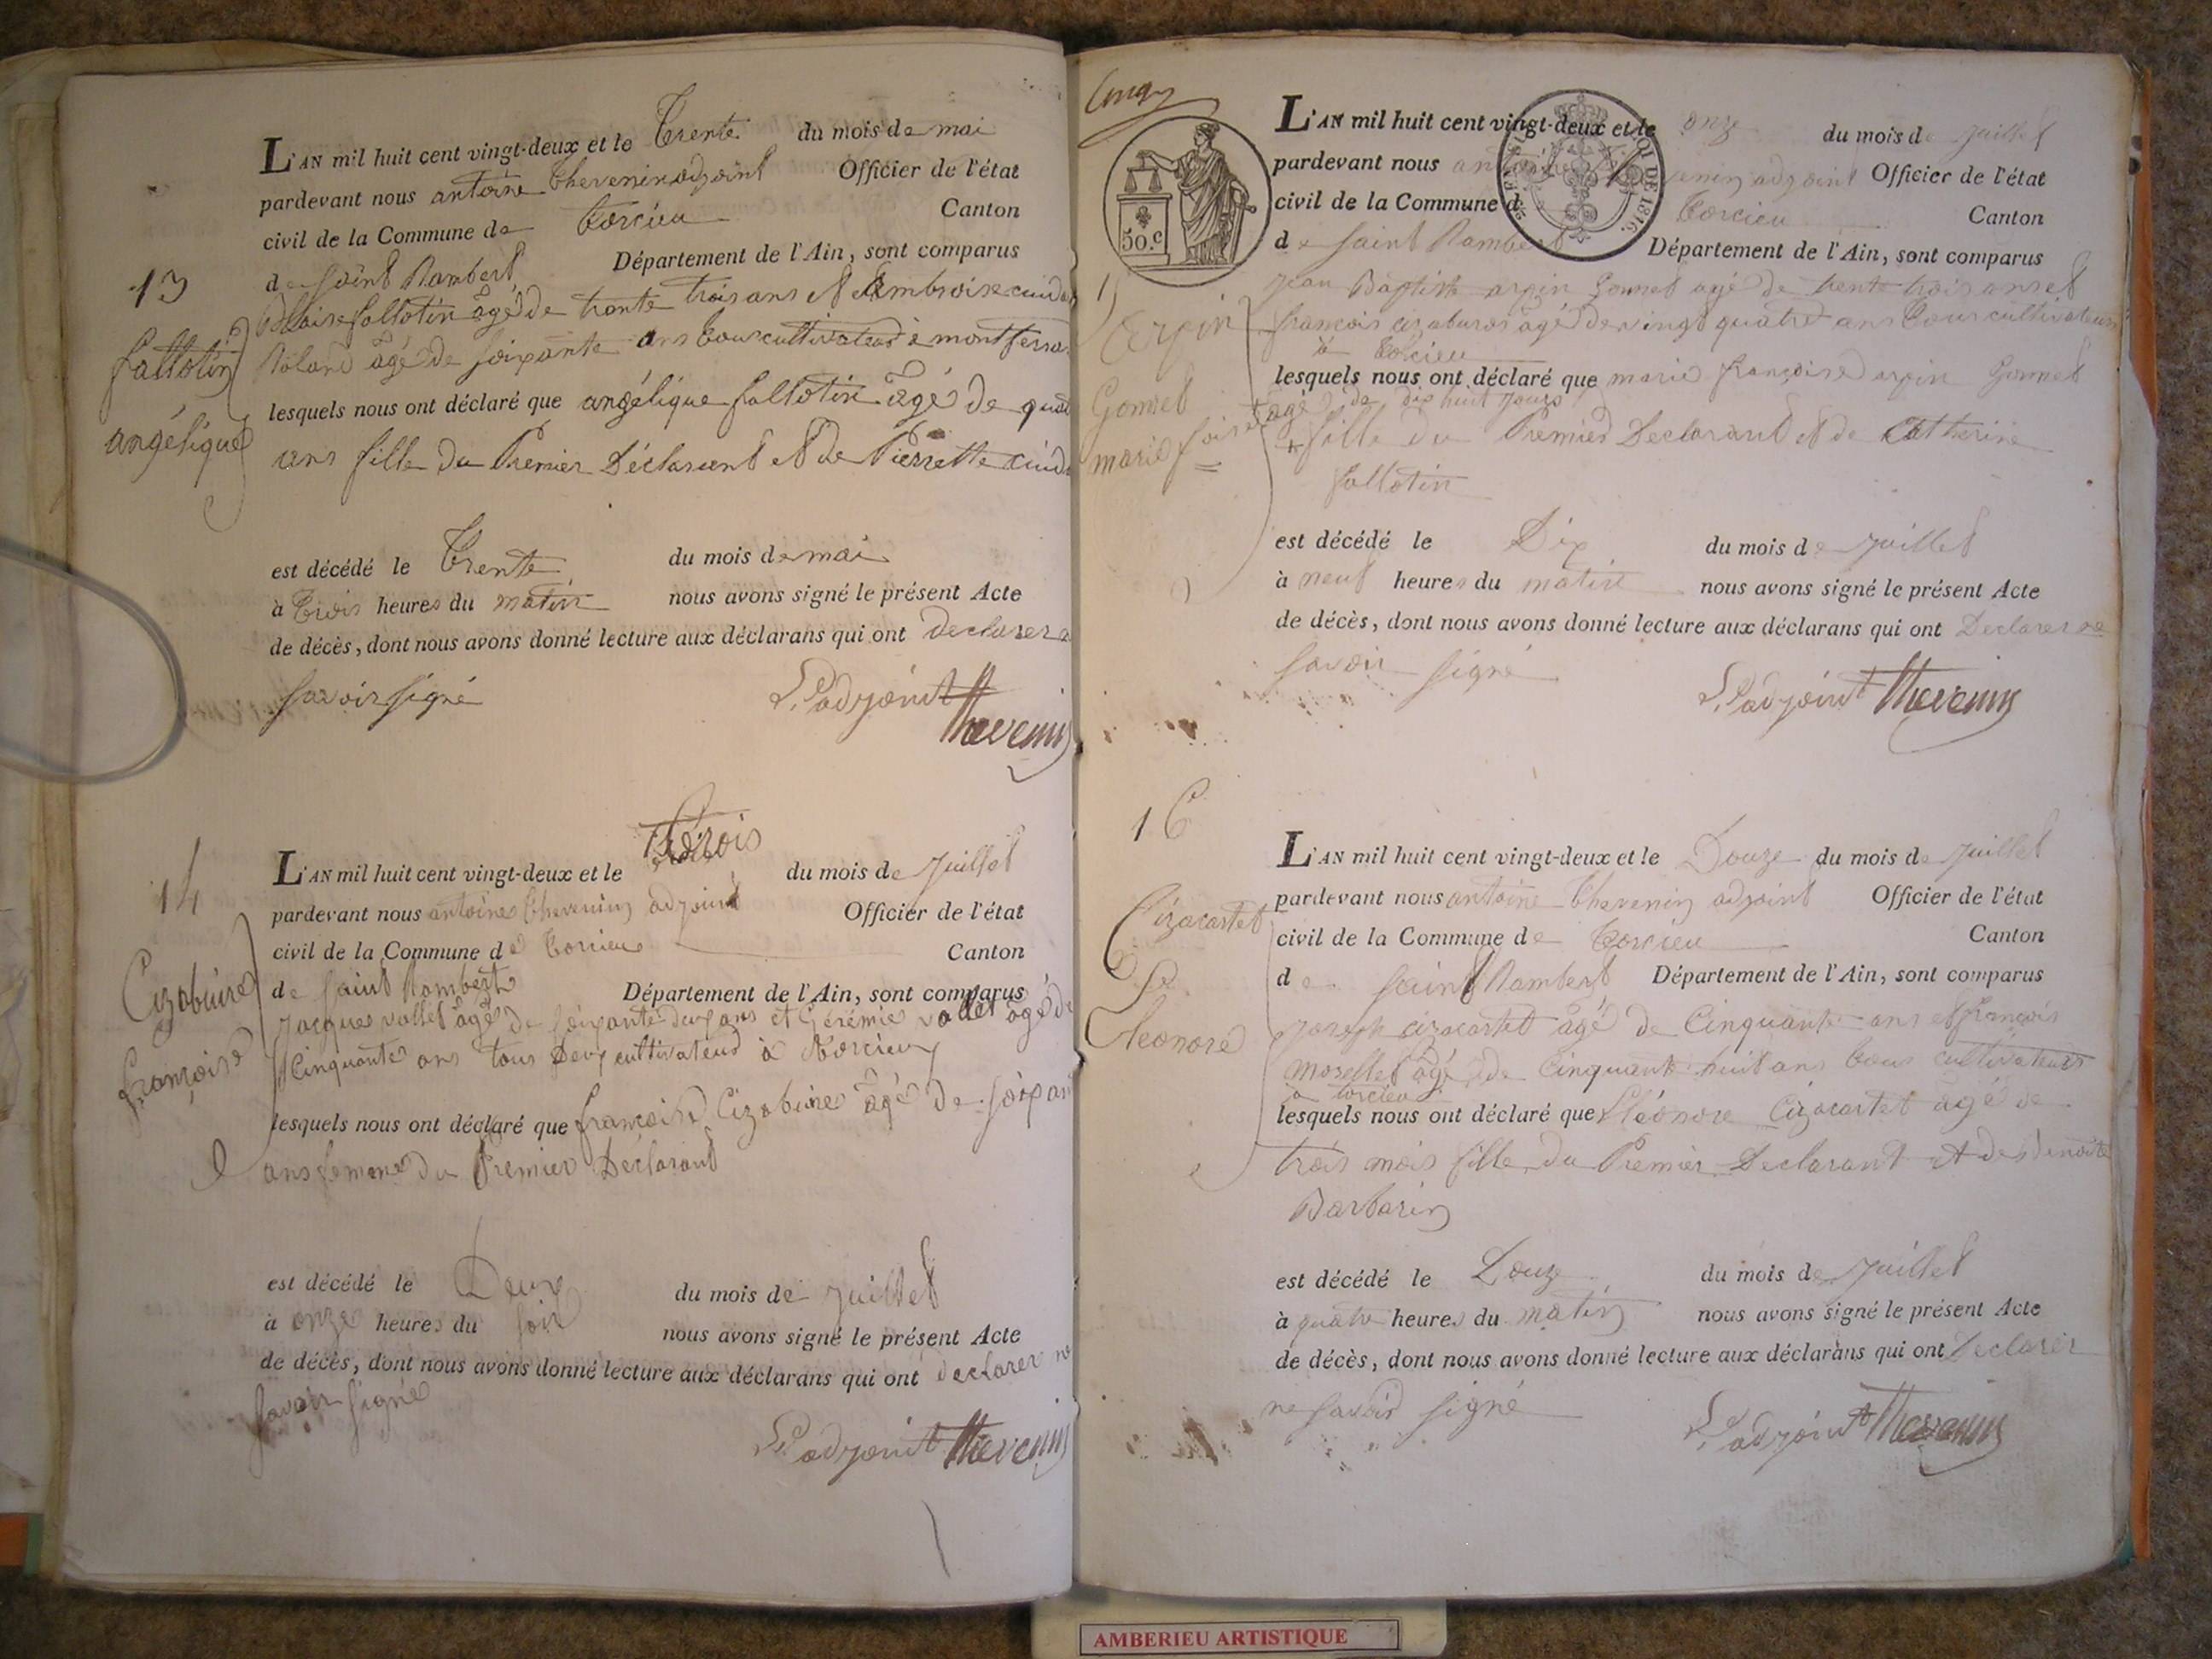 13
fallotin
angélique
L'AN mil huit cent vingt-deux et le Trente du mois de mai
pardevant nous antoine thevenin adjoint Officier de l'état
civil de la Commune de torcieu Canton
de saint Rambert Département de l'Ain, sont comparus
Blaise fallotin agé de trente trois ans et Ambroise
Roland agé de soixante ans tous cultivateurs à
lesquels nous ont déclaré que angélique fallotin agé de
ans fille du Premier Déclarant et de Pierrette
est décédé le trente du mois de mai
à trois heures du matin nous avons signé le présent Acte
de décès, dont nous avons donné lecture aux déclarans qui ont declarer
savoir signé
L'adjoint Thevenin
14
Cizabuire
françoise
L'AN mil huit cent vingt-deux et le trois du mois de juillet
pardevant nous antoine thevenin adjoint Officier de l'état
civil de la Commune de torcieu Canton
de saint Rambert Département de l'Ain, sont comparus
jacques vallet agé de soixante deux ans et Gérémie vallet agé de
Cinquante ans tous deux cultivateurs à torcieu
lesquels nous ont déclaré que françoise Cizabuire agé de
ans femme du Premier Déclarant
est décédé le Deux du mois de juillet
à onze heures du soir nous avons signé le présent Acte
de décès, dont nous avons donné lecture aux déclarans qui ont declarer ne
savoir signé
L'adjoint Thevenin
50.c
LOI DE 1816.
Gonnet
marie
L'AN mil huit cent vingt-deux et le onze du mois de juillet
pardevant nous adjoint Officier de l'état
civil de la Commune de torcieu Canton
de saint Rambert Département de l'Ain, sont comparus
jean Baptiste arpin Gonnet agé de trente trois ans et
francois agé de vingt quatre ans tous cultivateurs
à torcieu
lesquels nous ont déclaré que marie françoise arpin Gonnet
agé de dix huit jours
fille du Premier Declarant et de Catherine
fallotin
est décédé le Dix du mois de juillet
à neuf heures du matin nous avons signé le présent Acte
de décès, dont nous avons donné lecture aux déclarans qui ont Declarer ne
savoir signé
L'adjoint Thevenin
16
Cizacartet
Eleonore
L'AN mil huit cent vingt-deux et le Douze du mois de juillet
pardevant nous antoine thevenin adjoint Officier de l'état
civil de la Commune de torcieu Canton
de saint Rambert Département de l'Ain, sont comparus
joseph cizacartet agé de Cinquante ans et françois
agé de Cinquante huit ans tous cultivateurs
à torcieu
lesquels nous ont déclaré que Eléonore Cizacartet agé de
trois mois fille du Premier Declarant et de
Barbarin
est décédé le Douze du mois de juillet
à quatre heures du matin nous avons signé le présent Acte
de décès, dont nous avons donné lecture aux déclarans qui ont Declarer
ne savoir signé
L'adjoint Thevenin
AMBERIEU ARTISTIQUE